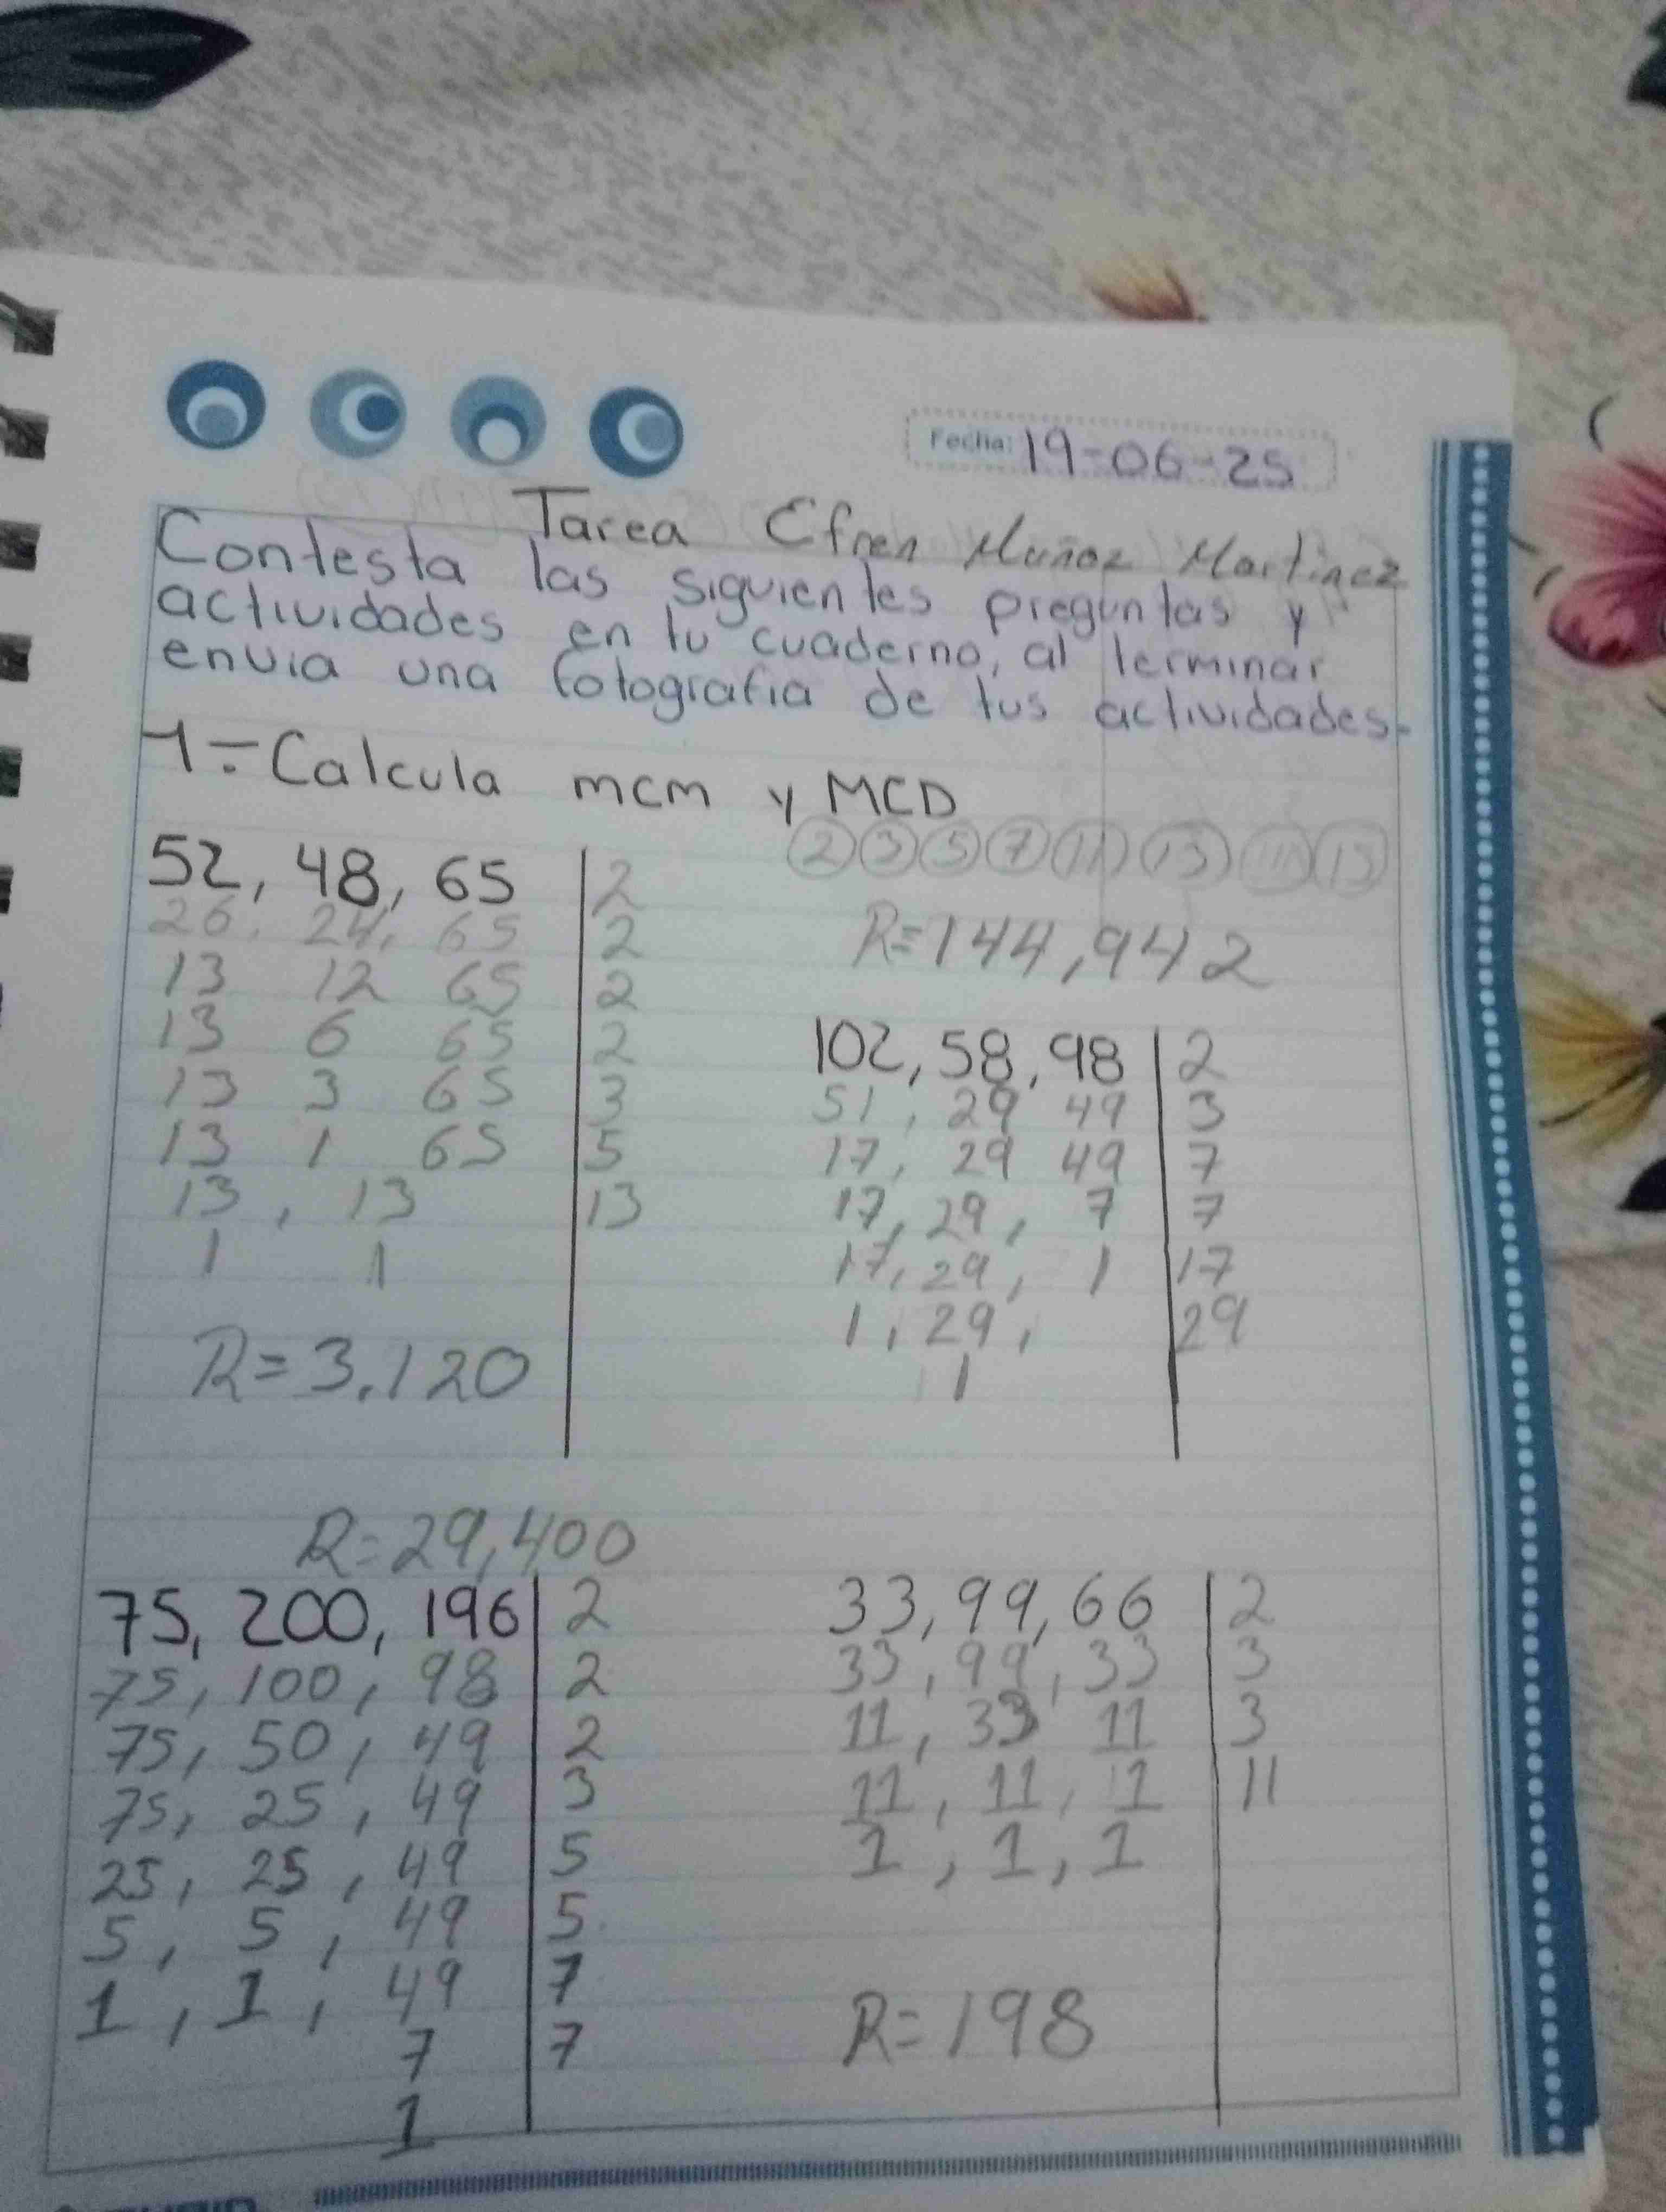 Fecha: 19-06-25
Tarea Efren Muñoz Martinez
Contesta las siguientes preguntas y
actividades en tu cuaderno, al terminar
envia una fotografia de tus actividades.
1.- Calcula mcm y MCD
2 3 5 7 11 13
52, 48, 65 | 2
26, 24, 65 | 2
13 12 65 | 2
13 6 65 | 2
13 3 65 | 3
13 1 65 | 5
13, 13 | 13
1 1
R=3,120
R=144,942
102, 58, 98 | 2
51, 29 49 | 3
17, 29 49 | 7
17, 29, 7 | 7
17, 29, 1 | 17
1, 29, | 29
1
R=29,400
75, 200, 196 | 2
75, 100, 98 | 2
75, 50, 49 | 2
75, 25, 49 | 3
25, 25, 49 | 5
5, 5, 49 | 5
1, 1, 49 | 7
7 | 7
1
33, 99, 66 | 2
33, 99, 33 | 3
11, 33 11 | 3
11, 11, 11 | 11
1, 1, 1
R=198